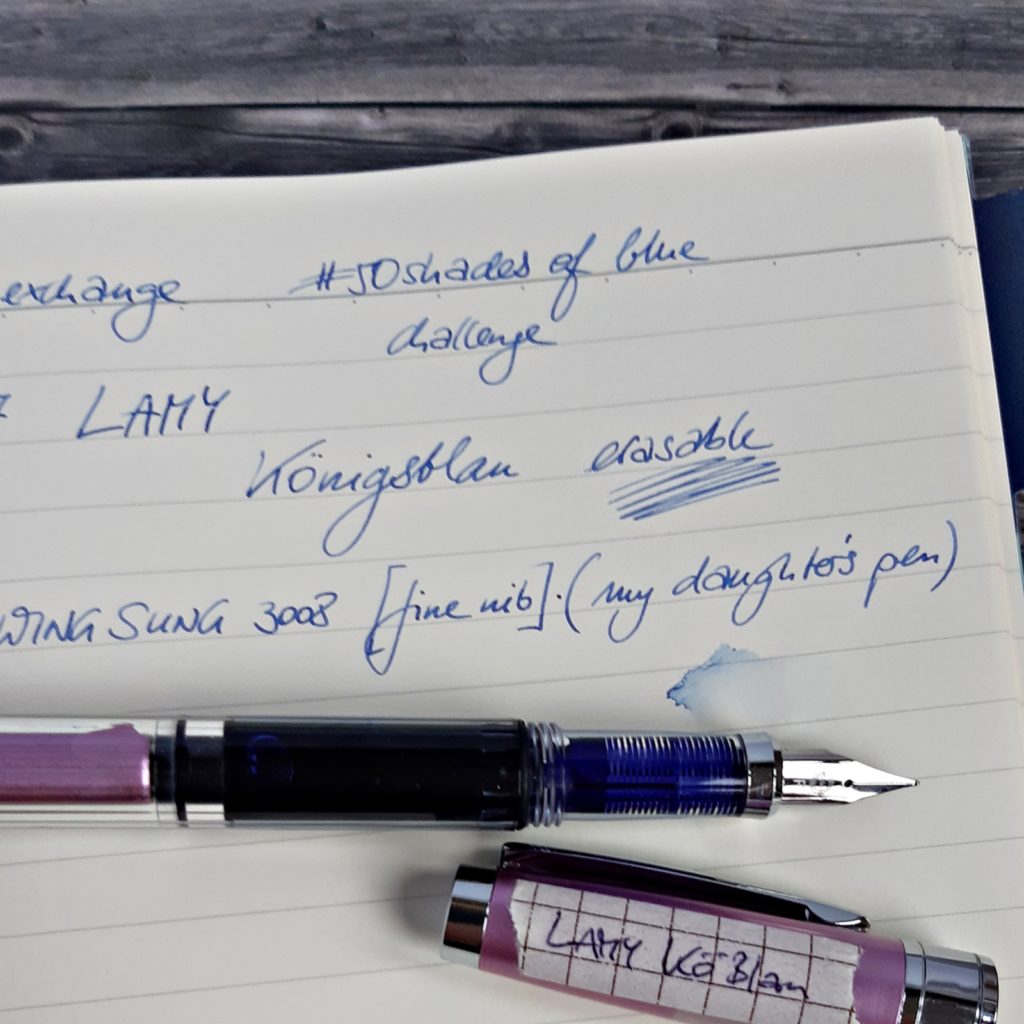 exchange #50shades of blue
challenge
LAMY
Königsblau erasable
WING SUNG 3008 [fine nib]. (my daughter's pen)
LAMY KöBlau